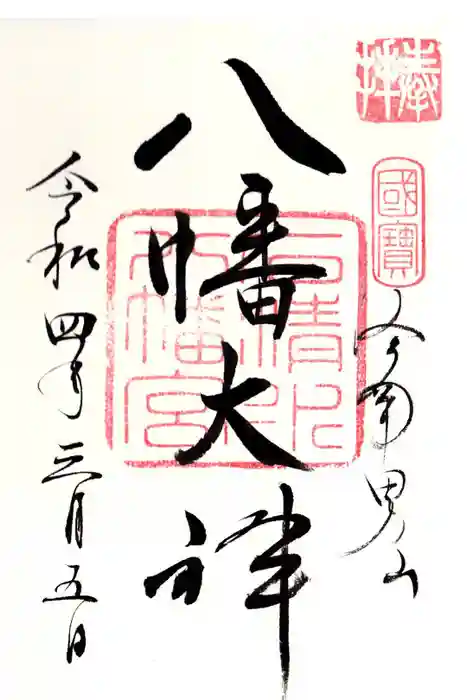 奉拝
國寶
男山
八幡大神
石清水
八幡宮
令和四年三月五日